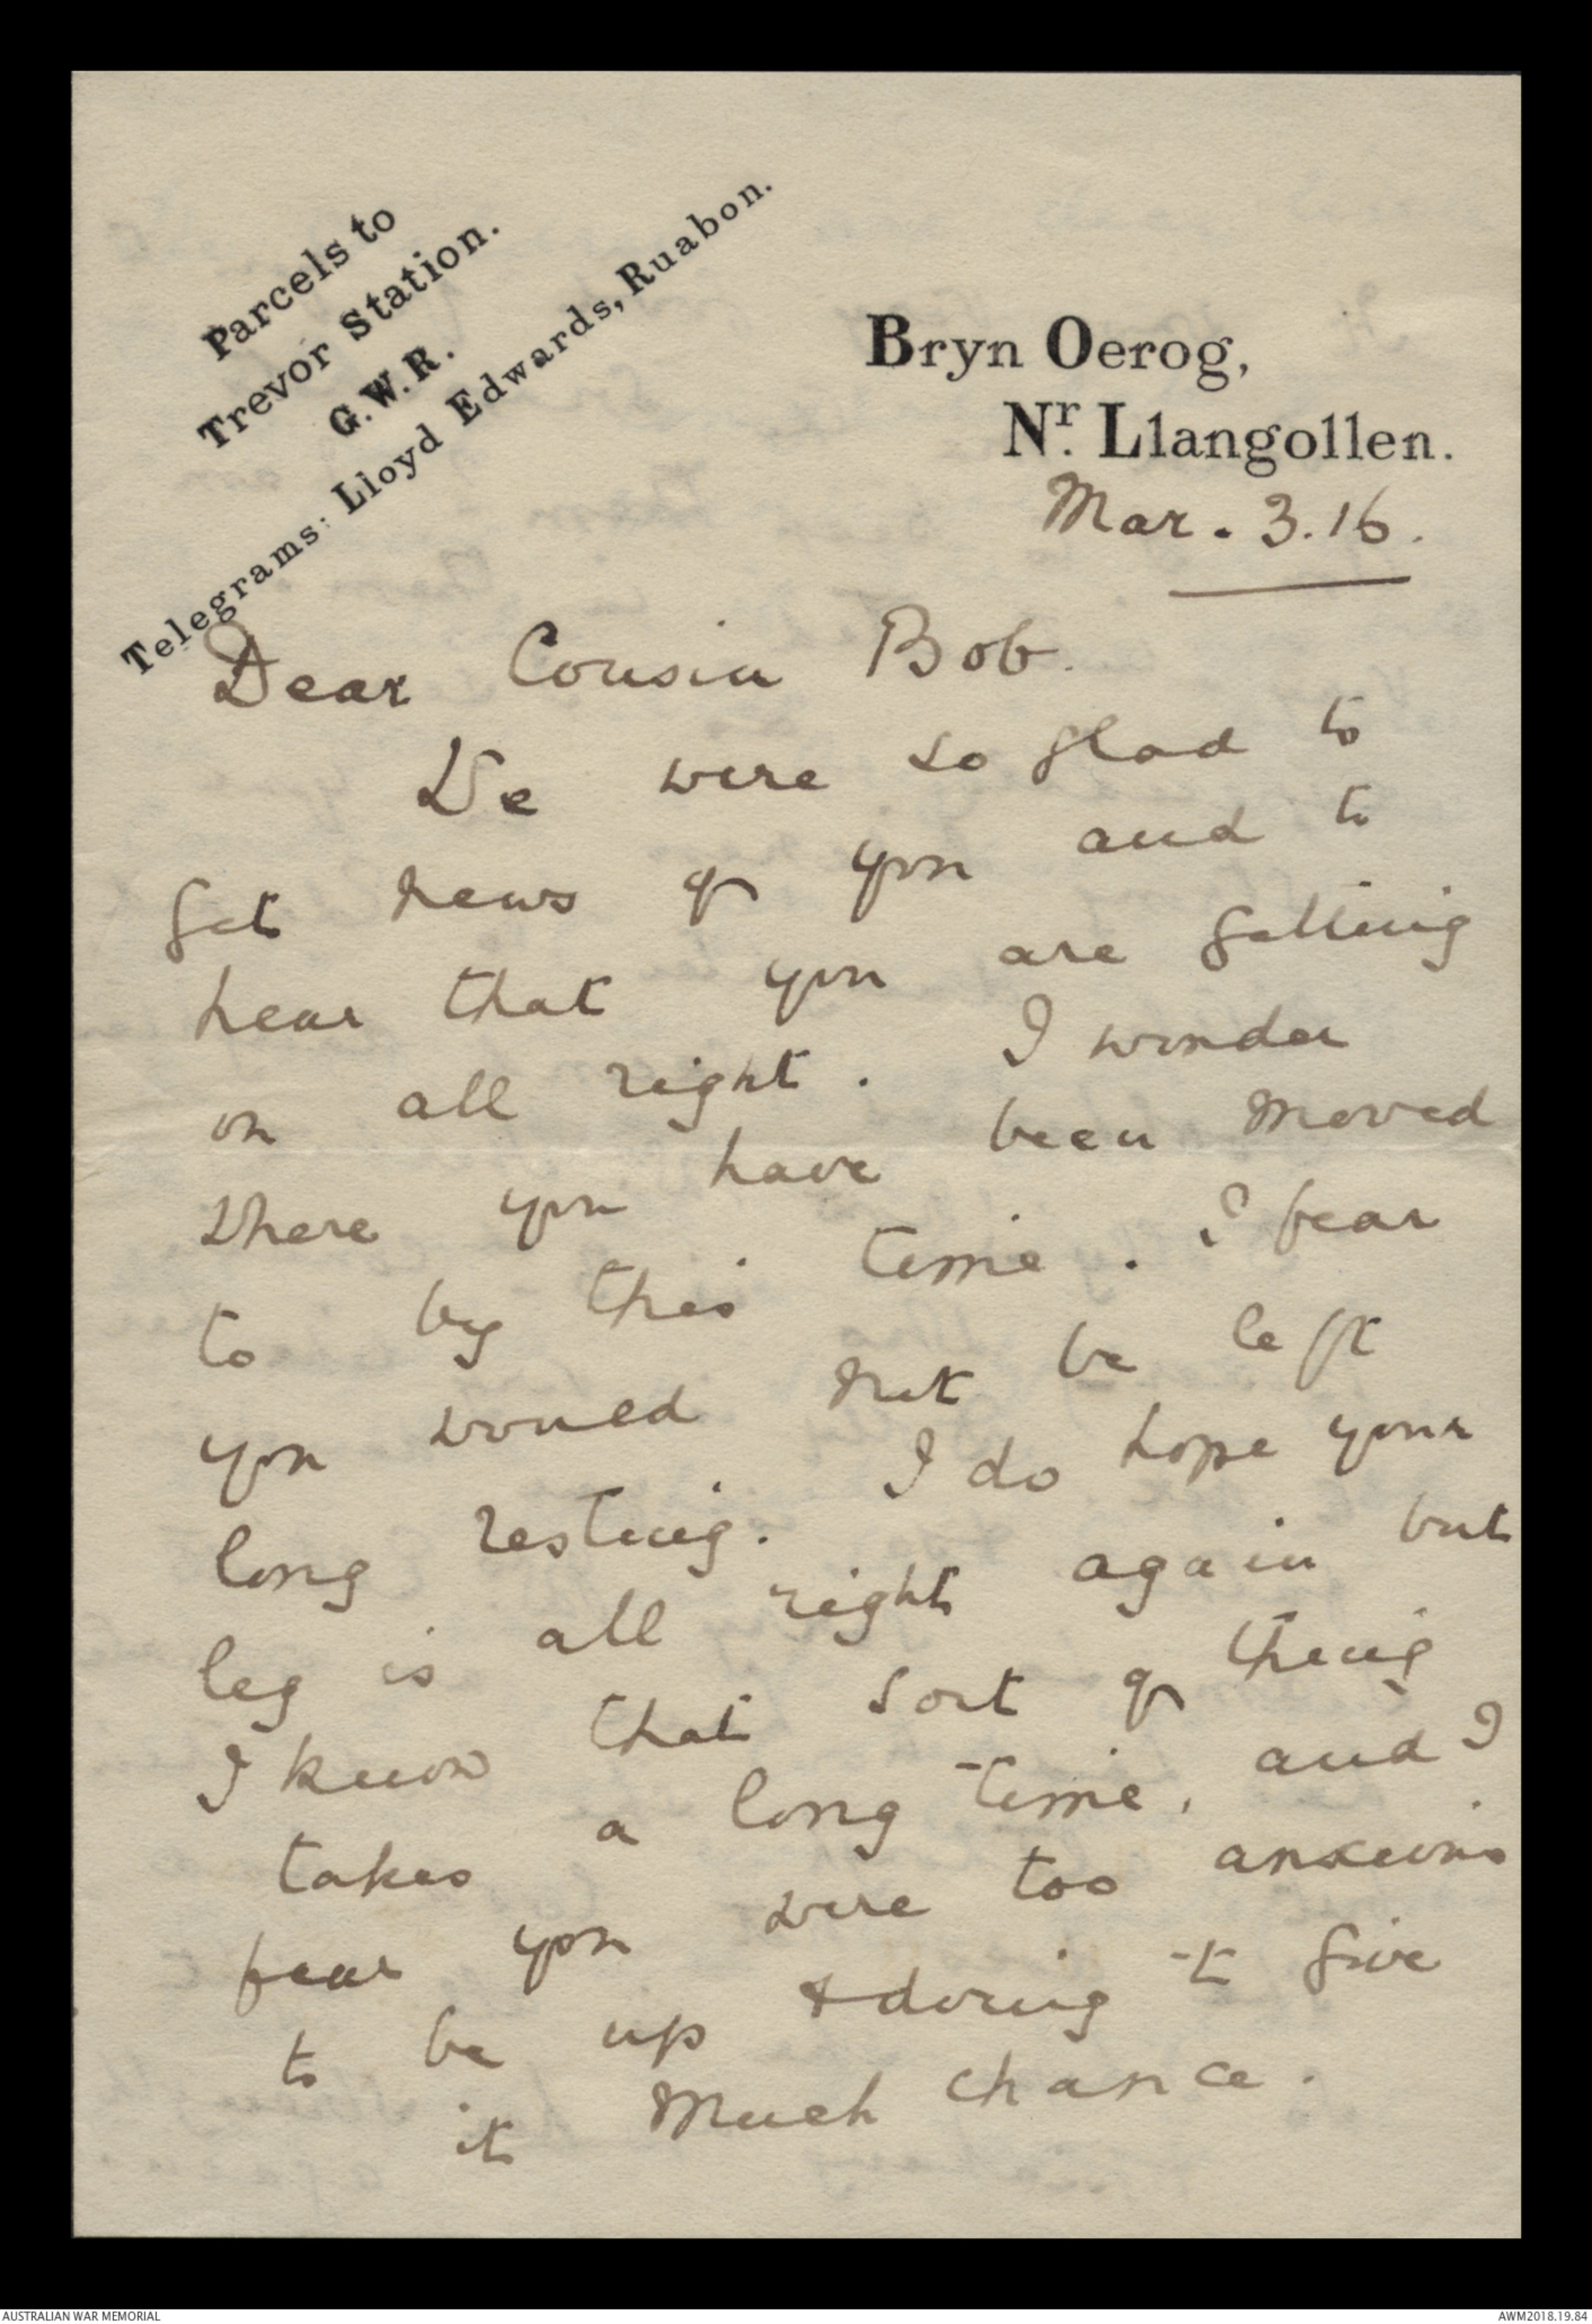 Parcels to
Trevor Station.
G.W.R.
Telegrams: Lloyd Edwards, Ruabon.
Bryn Oerog,
Nr. Llangollen.
Mar. 3. 16.
Dear Cousin Bob.
We were so glad to
get news of you and to
hear that you are getting
on all right. I wonder
where you have been moved
to by this time. I fear
you would not be left
long resting. I do hope your
leg is all right again but
I know that sort of thing
takes a long time, and I
fear you were too anxious
to be up & doing to give
it much chance.
AUSTRALIAN WAR MEMORIAL
AWM2018.19.84